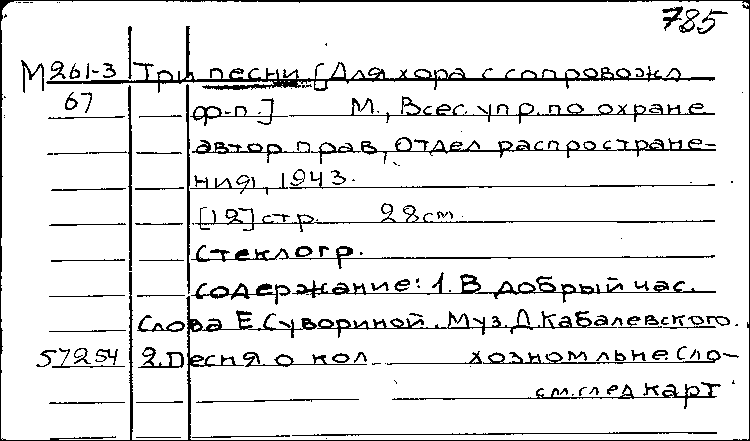 785
М261-3 Три песни [Для хора с сопровожд
67 ф-п.] М., Всес. упр. по охране
автор прав, Отдел распростране-
ния, 1943.
[12] стр. 28 см.
Стеклогр.
Содержание: 1. В добрый час.
Слова Е. Сувориной. Муз. Д. Кабалевского.
57254 2. Песня о кол хозном льне. Сло-
см. след карт